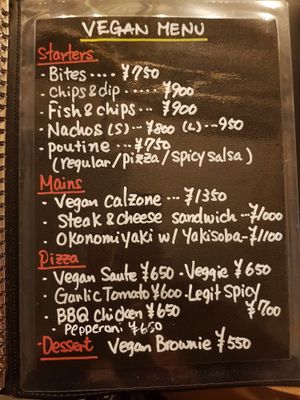 VEGAN MENU
Starters
· Bites .... ¥750
· Chips & dip ... ¥900
· Fish & chips ... ¥900
· Nachos (S) ... ¥800 (L) ... 950
· poutine ... ¥750
(regular/pizza/spicy salsa)
Mains
· Vegan Calzone ... ¥1350
· Steak & cheese sandwich ... ¥1000
· Okonomiyaki w/ Yakisoba - ¥1100
Pizza
· Vegan Saute ¥650 · Veggie ¥650
· Garlic Tomato ¥600 · Legit Spicy ¥700
· BBQ Chicken ¥650
· Pepperoni ¥650
· Dessert Vegan Brownie ¥550